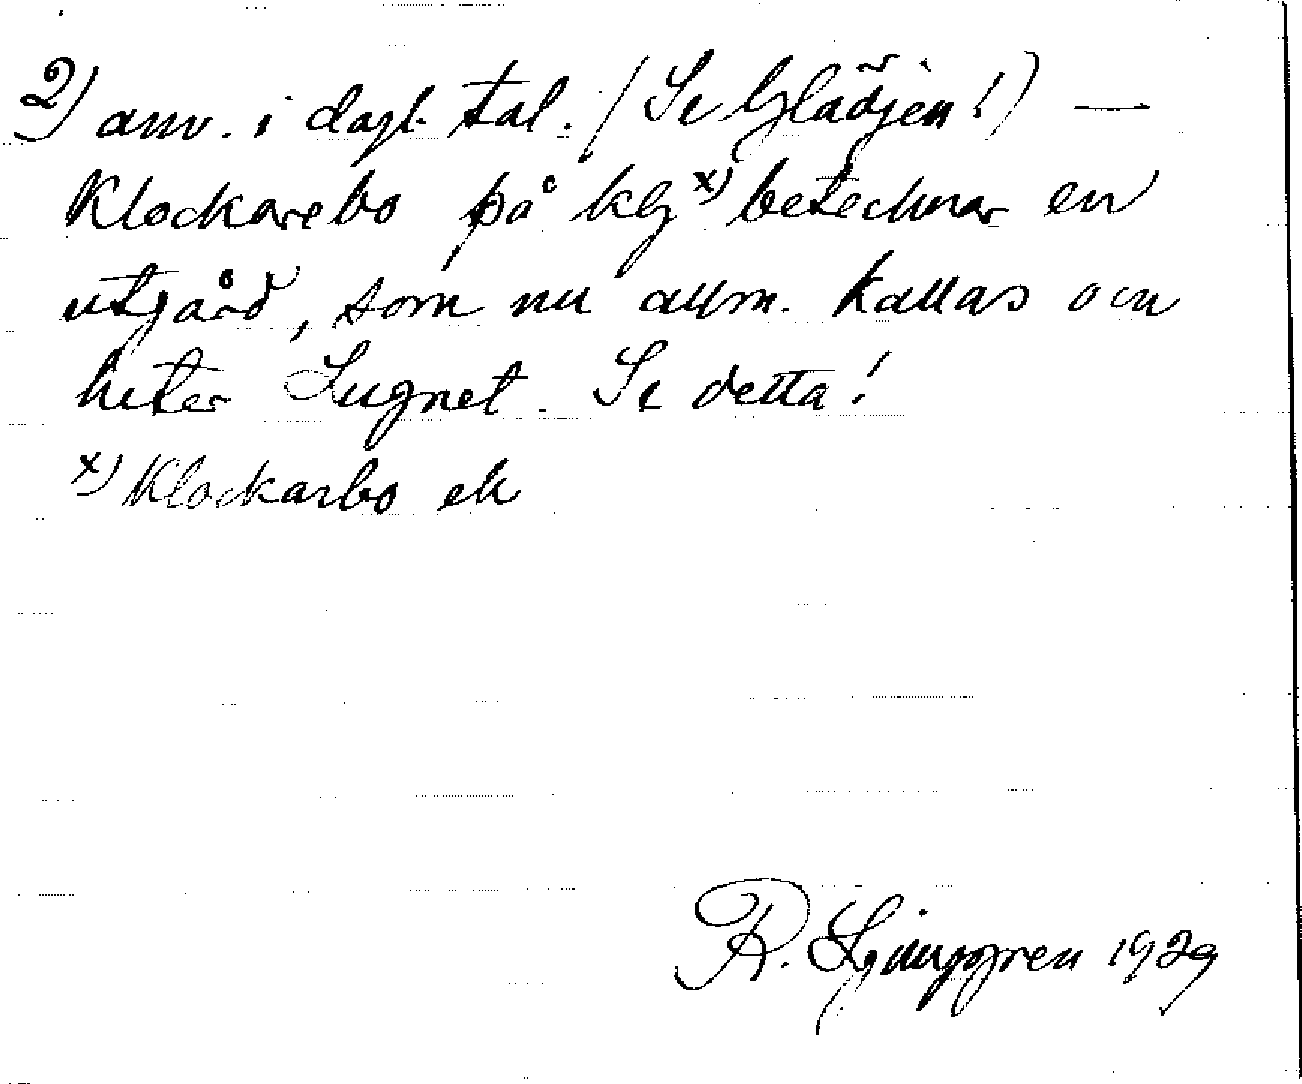 2) anv. i dagl. tal. (Se Glädjen!) —
Klockarebo på kbl x) betecknar en
utgård, som nu allm. kallas och
heter Lugnet. Se detta!
x) Klockarbo ek
R. Ljunggren 1929